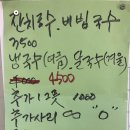 잔치국수, 비빔국수
3500
냉국수(여름), 물국수(겨울)
4500
추가 1그릇 1000
추가사리 00 "0"